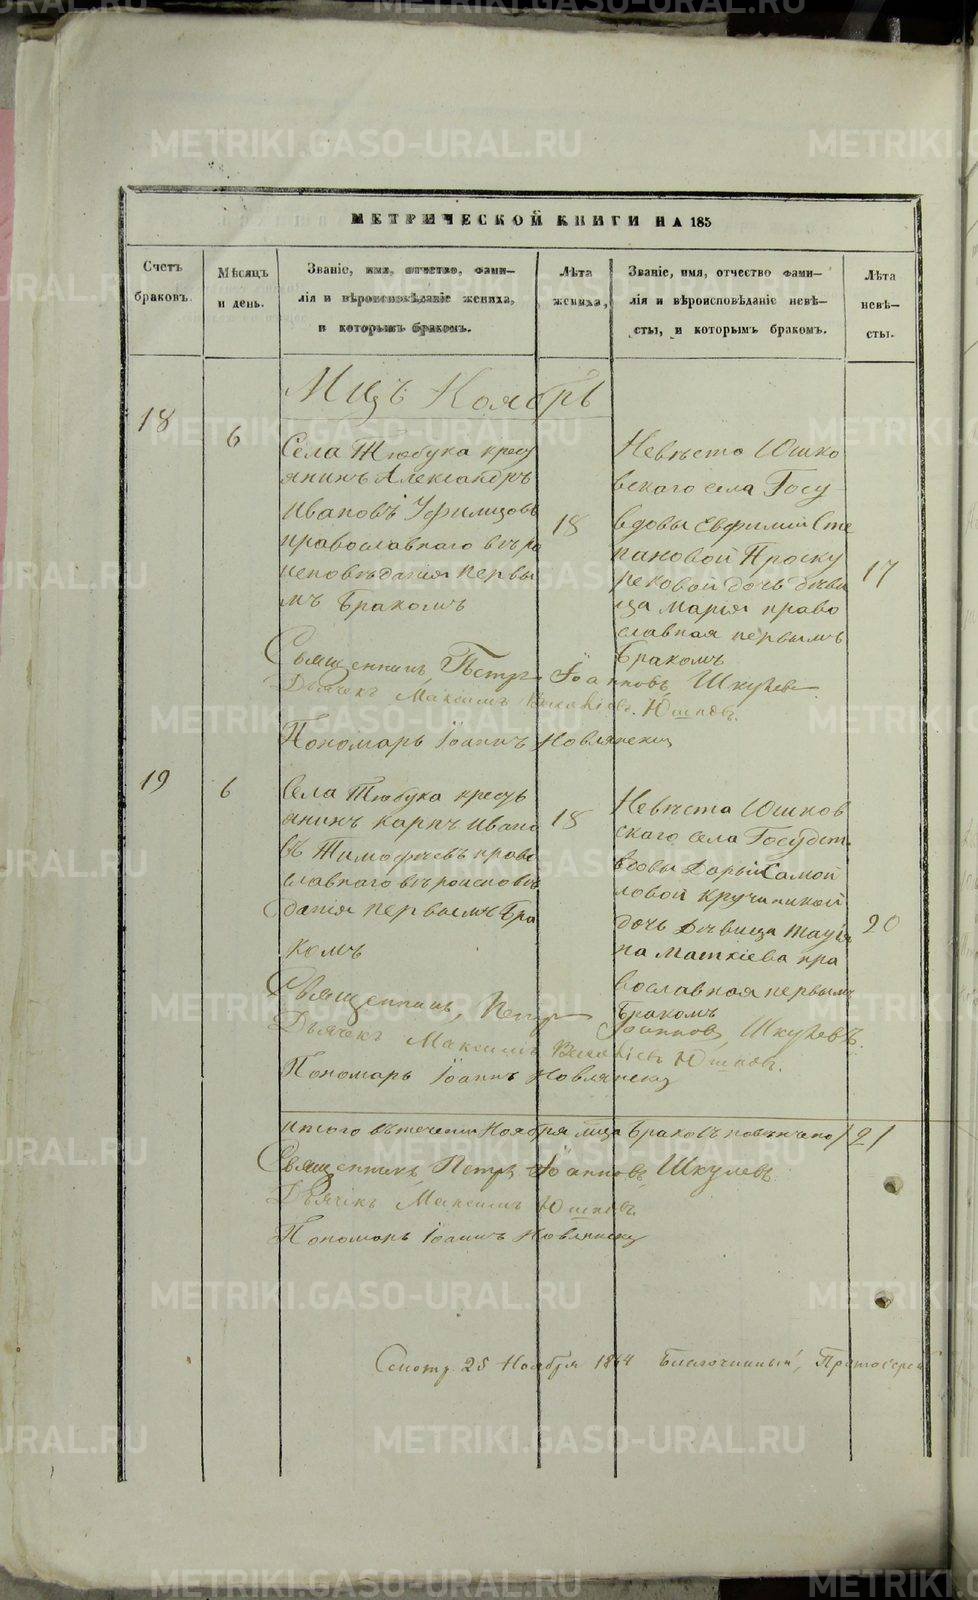 МЕТРИЧЕСКОЙ КНИГИ НА 185
Счетъ браковъ.
Мѣсяцъ и день.
Званіе, имя, отчество, фами-
лія и вѣроисповѣданіе жениха,
и которымъ бракомъ.
Лѣта жениха,
Званіе, имя, отчество фами-
лія и вѣроисповѣданіе невѣ-
сты, и которымъ бракомъ.
Лѣта невѣ-
сты.
Мцъ Ноябрь
18
6
Села Тюбука кресть
янинъ Александръ
Ивановъ Уфимцовъ
православнаго вѣро
исповѣданія первы
мъ Бракомъ
18
Невѣста Юшко
вскаго села Госу
вдовы Евфиміи Сте
пановой Проску
рековой дочь дѣви
ца Марія право
славная первымъ
Бракомъ
17
Священникъ Петръ Іоанновъ Шкулевъ
Дьячекъ Максимъ Юшковъ.
Пономарь Іоаннъ Новлянскій
19
6
Села Тюбука кресть
янинъ Карпъ Ивано
въ Тимофѣевъ право
славнаго вѣроисповѣ
данія первымъ Бра
комъ
18
Невѣста Юшков
скаго села Государст
вдовы Дарьи Самой
ловой Кручининой
дочь Дѣвица Татья
на Маткіева пра
вославная первымъ
Бракомъ
20
Священникъ, Петръ Іоанновъ Шкулевъ.
Дьячекъ Максимъ Юшковъ.
Пономарь Іоаннъ Новлянскій
Итого въ теченіи Ноября мца Браковъ повѣнчано 2
Священникъ Петръ Іоанновъ Шкулевъ
Дьячекъ Максимъ Юшковъ.
Пономарь Іоаннъ Новлянскій
Смотр. 25 Ноября 1864 Благочинный, Протоіерей
METRIKI.GASO-URAL.RU